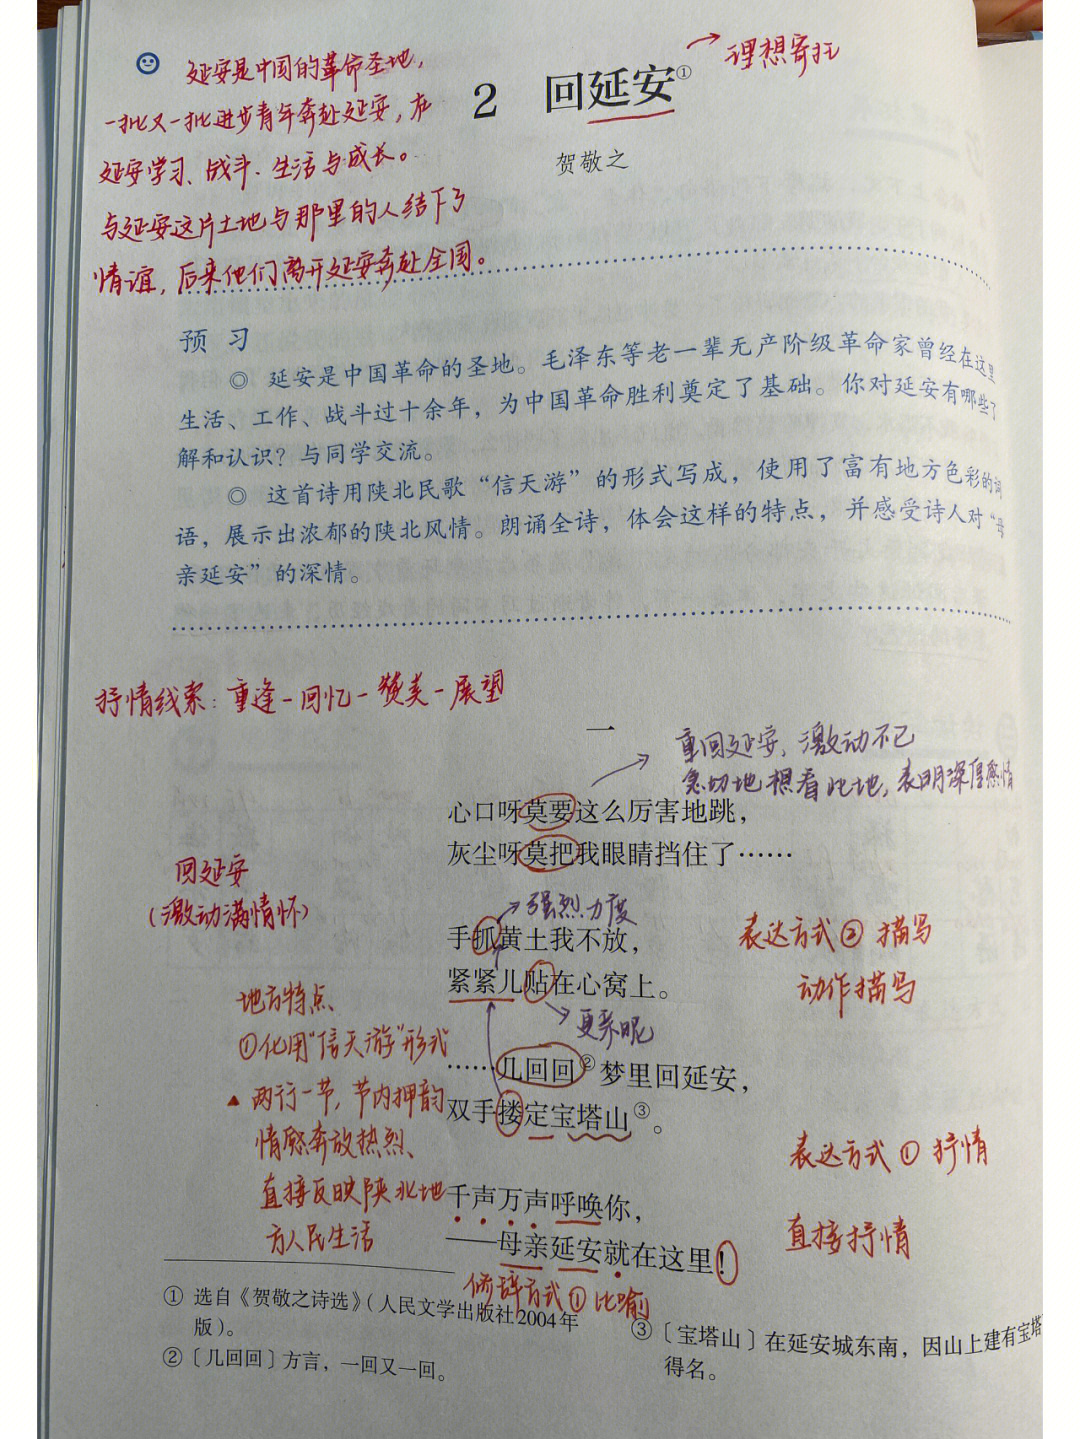 延安是中国的革命圣地，
一批又一批进步青年奔赴延安，在
延安学习、战斗、生活与成长。
与延安这片土地与那里的人结下了
情谊，后来他们离开延安奔赴全国。
理想寄托
2 回延安①
贺敬之
预习
◎ 延安是中国革命的圣地。毛泽东等老一辈无产阶级革命家曾经在这里
生活、工作、战斗过十余年，为中国革命胜利奠定了基础。你对延安有哪些了
解和认识？与同学交流。
◎ 这首诗用陕北民歌“信天游”的形式写成，使用了富有地方色彩的词
语，展示出浓郁的陕北风情。朗诵全诗，体会这样的特点，并感受诗人对“母
亲延安”的深情。
抒情线索：重逢-回忆-赞美-展望
一
重回延安，激动不已
急切地想看此地，表明深厚感情
心口呀莫要这么厉害地跳，
灰尘呀莫把我眼睛挡住了……
回延安
（激动满情怀）
强烈力度
手抓黄土我不放，
紧紧儿贴在心窝上。
更亲昵
表达方式② 描写
动作描写
地方特点、
①化用“信天游”形式
▲ 两行一节，节内押韵
情感奔放热烈、
直接反映陕北地
方人民生活
……几回回②梦里回延安，
双手搂定宝塔山③。
表达方式① 抒情
直接抒情
千声万声呼唤你，
——母亲延安就在这里！
修辞方式① 比喻
① 选自《贺敬之诗选》（人民文学出版社2004年
版）。
②〔几回回〕方言，一回又一回。
③〔宝塔山〕在延安城东南，因山上建有宝塔
得名。